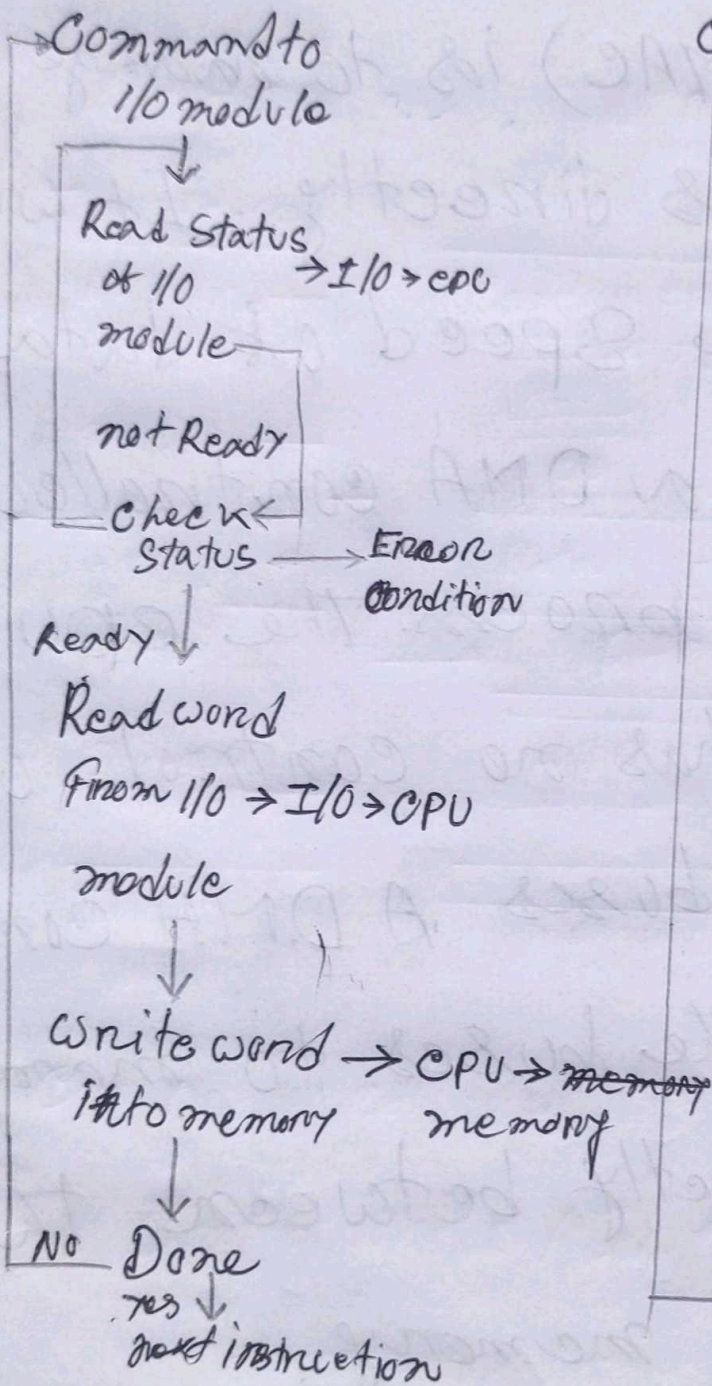 Command to
I/O module
Read Status
of I/O → I/O → CPU
module
not Ready
Check
Status → Error
Condition
Ready
Read word
From I/O → I/O → CPU
module
Write word → CPU → memory
into memory memory
No Done
Yes
next instruction